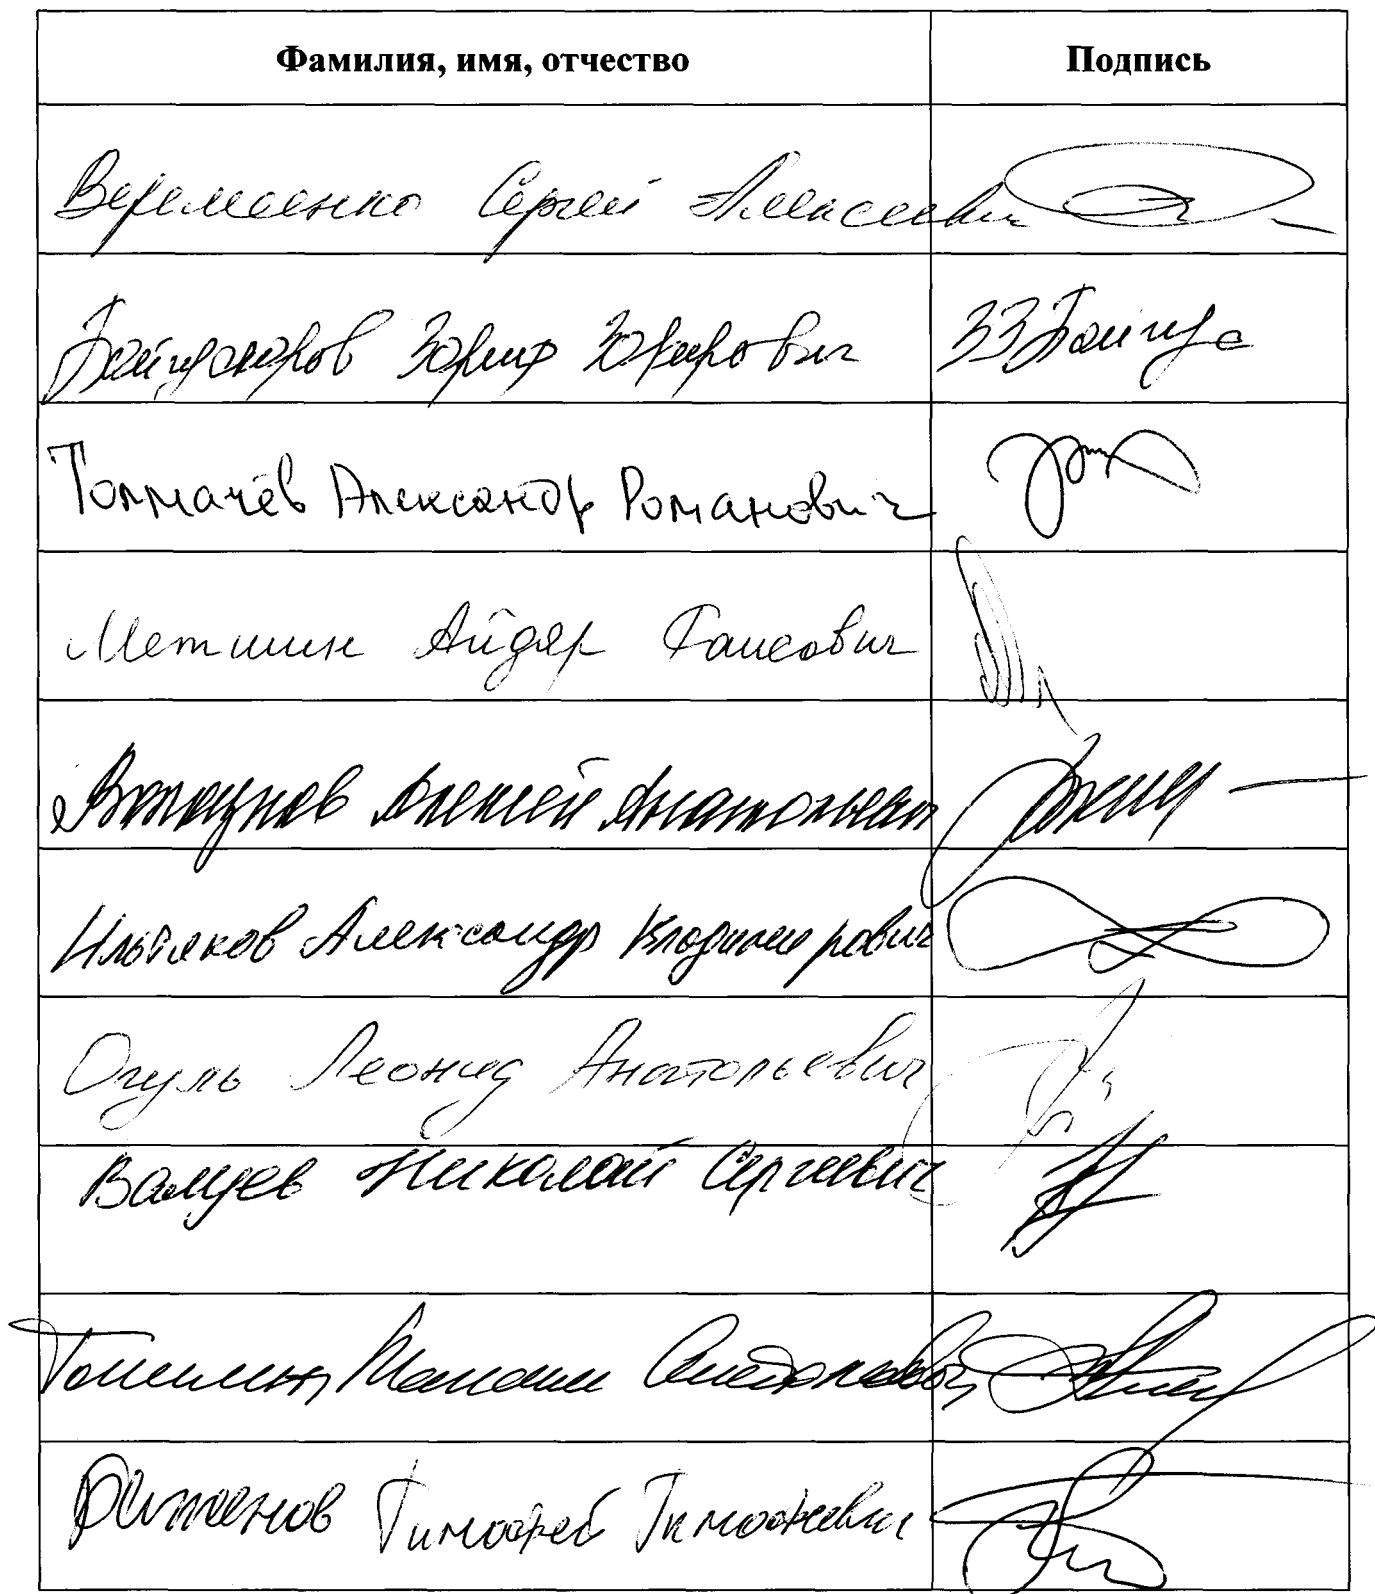 Фамилия, имя, отчество Подпись
Веремеенко Сергей Алексеевич
Байгускаров Зариф Закирович ЗЗБайгус
Толмачёв Александр Романович
Метшин Айдар Раисович
Алексей Анатольевич
Ильтяков Александр Владимирович
Огуль Леонид Анатольевич
Валуев Николай Сергеевич
Топилин Максим Анатольевич
Баженов Тимофей Тимофеевич